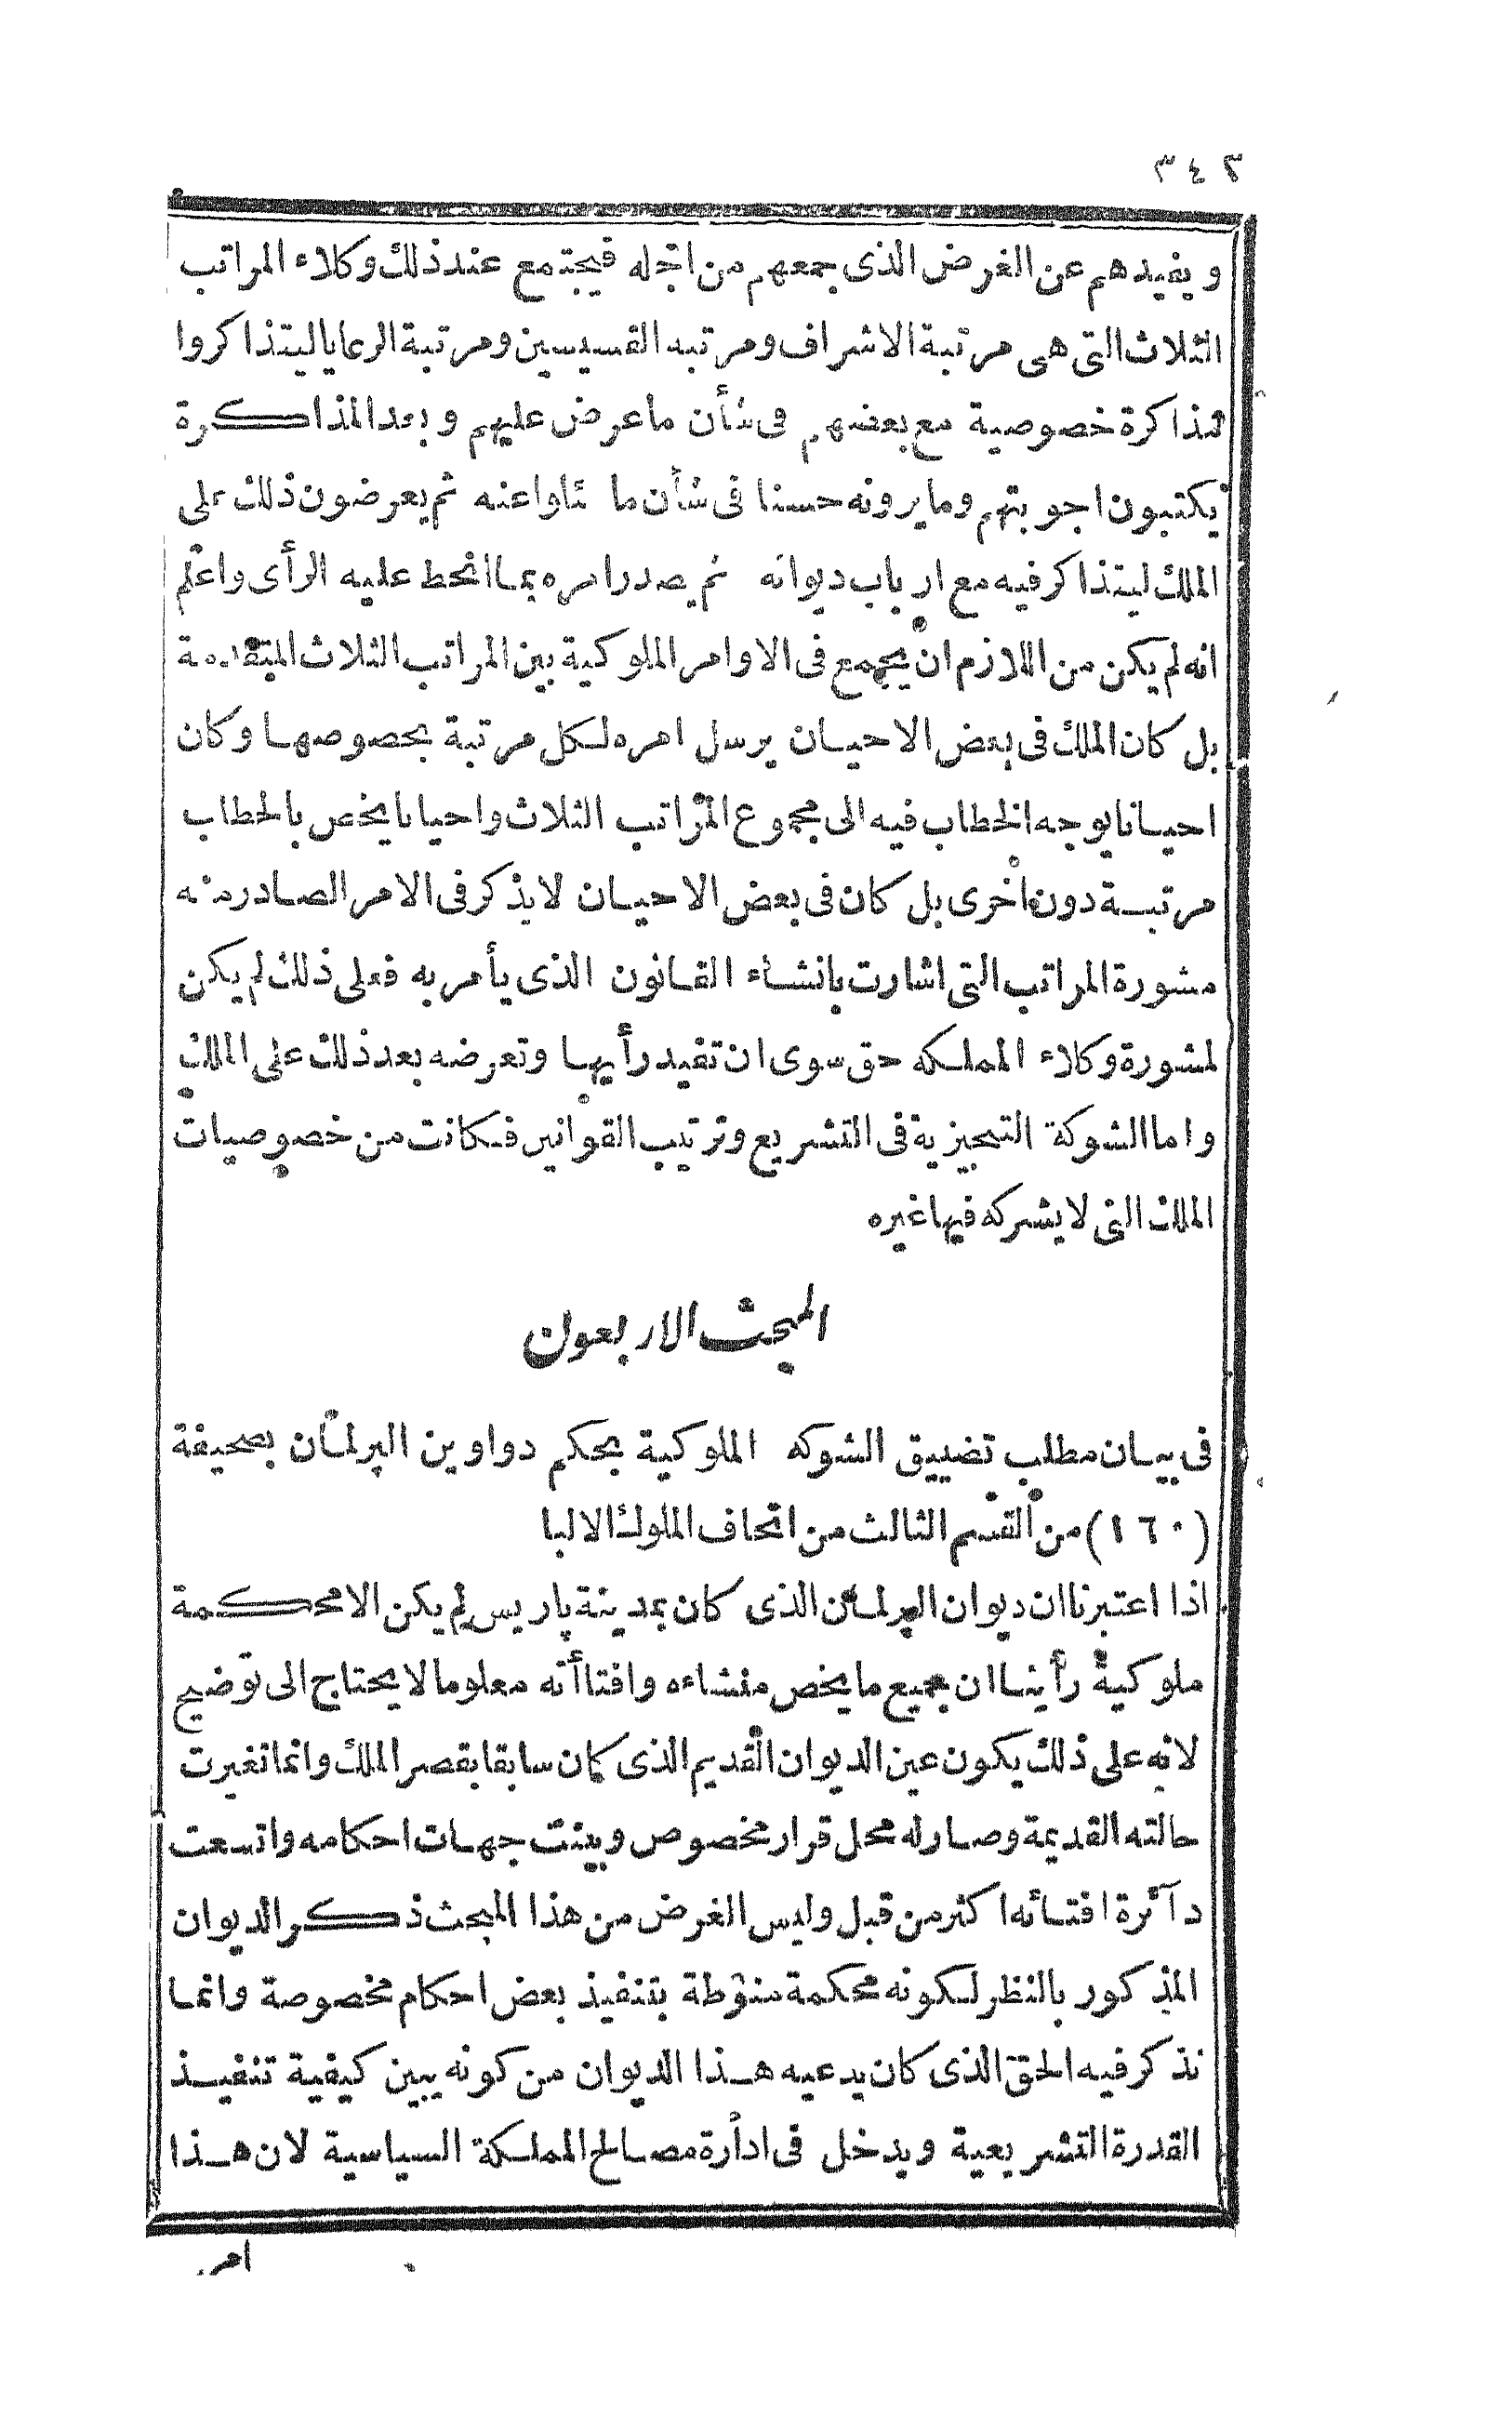 ٣٤٢
ويفيدهم عن الغرض الذى جمعهم من اجله فيجتمع عند ذلك وكلاء المراتب
الثلاث التى هى مرتبة الاشراف ومرتبه القسيسين ومرتبة الرعايا ليتذاكروا
مذاكرة خصوصية مع بعضهم فى شأن ماعرض عليهم وبعد المذاكرة
يكتبون اجوبتهم ومايرونه حسنا فى شأن ما عنه ثم يعرضون ذلك على
الملك ليتذاكر فيه مع ارباب ديوانه ثم يصدر امره بما انحط عليه الرأى واعلم
انه لم يكن من اللازم ان يجمع فى الاوامر الملوكية بين المراتب الثلاث المتقدمة
بل كان الملك فى بعض الاحيان يرسل امره لكل مرتبة بخصوصها وكان
احيانا يوجه الخطاب فيه الى مجموع المراتب الثلاث واحيانا يخص بالخطاب
مرتبة دون اخرى بل كان فى بعض الاحيان لايذكر فى الامر الصادر منه
مشورة المراتب التى اشارت بانشاء القانون الذى يأمر به فعلى ذلك لم يكن
لمشورة وكلاء المملكه حق سوى ان تفيد رأيها وتعرضه بعد ذلك على الملك
واما الشوكة التنجيزية فى التشريع وترتيب القوانين فكانت من خصوصيات
الملك التى لايشركه فيها غيره
المبحث الاربعون
فى بيان مطلب تضييق الشوكه الملوكية بحكم دواوين البرلمان بصحيفة
(١٦٠) من القسم الثالث من اتحاف الملوك الالبا
اذا اعتبرنا ان ديوان البرلمان الذى كان بمدينة پاريس لم يكن الامحكمة
ملوكية رأينا ان جميع مايخص منشاءه وافتاآته معلوما لايحتاج الى توضيح
لانه على ذلك يكون عين الديوان القديم الذى كان سابقا بقصر الملك وانما تغيرت
حالته القديمة وصار له محل قرار مخصوص وبينت جهات احكامه واتسعت
دآئرة افتائه اكثر من قبل وليس الغرض من هذا المبحث ذكر الديوان
المذكور بالنظر لكونه محكمة منوطة بتنفيذ بعض احكام مخصوصة وانما
نذكر فيه الحق الذى كان يدعيه هذا الديوان من كونه يبين كيفية تنفيذ
القدرة التشريعية ويدخل فى ادارة مصالح المملكة السياسية لان هذا
امر